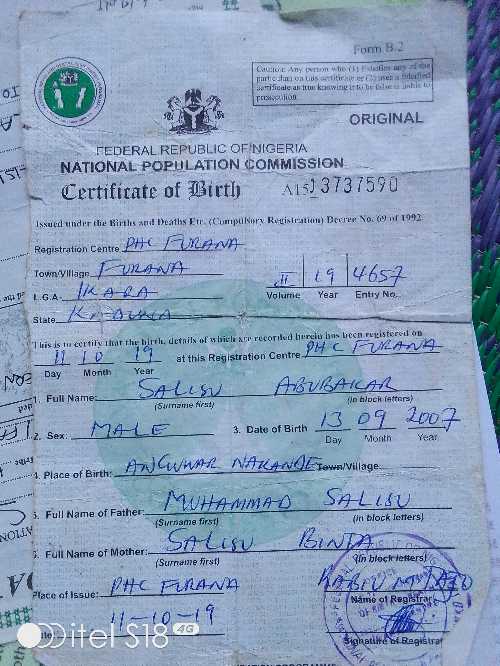 Form B.2
Caution: Any person who (1) Falsifies any of the
particulars on this certificate or (2) uses a falsified
certificate as true knowing it to be false is liable to
prosecution
ORIGINAL
FEDERAL REPUBLIC OF NIGERIA
NATIONAL POPULATION COMMISSION
Certificate of Birth A15J3737590
Issued under the Births and Deaths Etc. (Compulsory Registration) Decree No. 69 of 1992
Registration Centre PHC FURANA
Town/Village FURANA
II 19 4657
L.G.A. IKARA Volume Year Entry No.
State KADUNA
This is to certify that the birth, details of which are recorded herein has been registered on
11 10 19 at this Registration Centre PHC FURANA
Day Month Year
1. Full Name: SALISU ABUBAKAR
(Surname first) (in block letters)
2. Sex: MALE 3. Date of Birth 13 09 2007
Day Month Year
4. Place of Birth: ANGUWAR NAKANDE Town/Village
5. Full Name of Father: MUHAMMAD SALISU
(Surname first) (in block letters)
6. Full Name of Mother: SALISU BINTA
(Surname first) (in block letters)
Place of Issue: PHC FURANA KABIU
Name of Registrar
11-10-19
Signature of Registrar
itel S18 4G